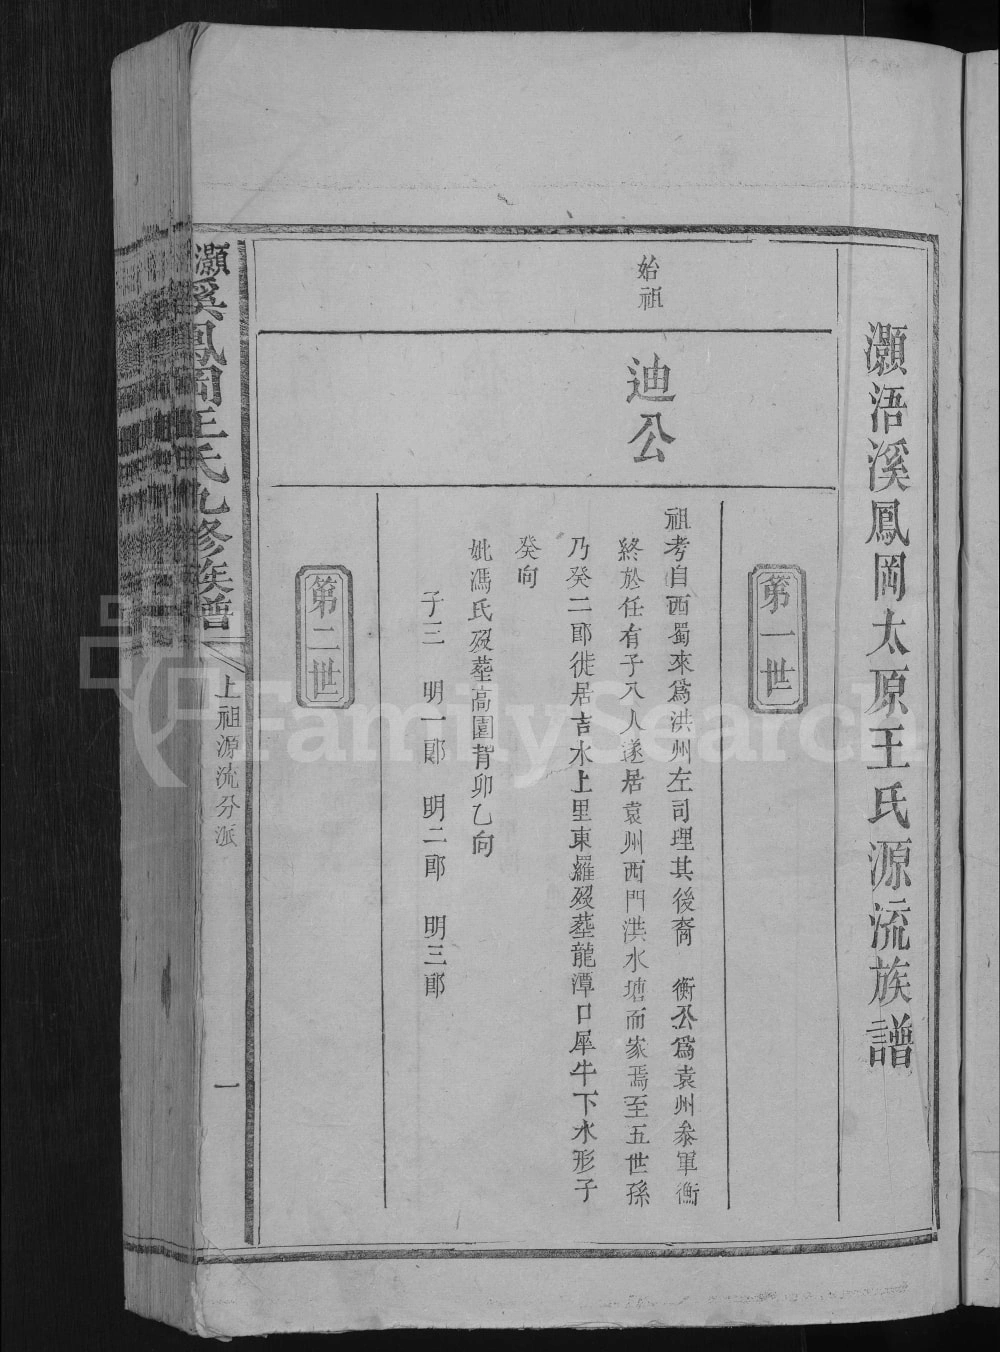 灝浯溪鳳岡太原王氏源流族譜
始祖
迪公
第一世
祖考自西蜀來爲洪州左司理其後裔　衡公爲袁州叅軍衡
終於任有子八人遂居袁州西門洪水塘而家焉至五世孫
乃癸二郎徙居吉水上里東羅歿塟龍潭口犀牛下水形子
癸向
妣馮氏歿塟高園背卯乙向
子三　明一郎　明二郎　明三郎
第二世
灝溪鳳岡王氏九修族譜
上祖源流分派
一
FamilySearch